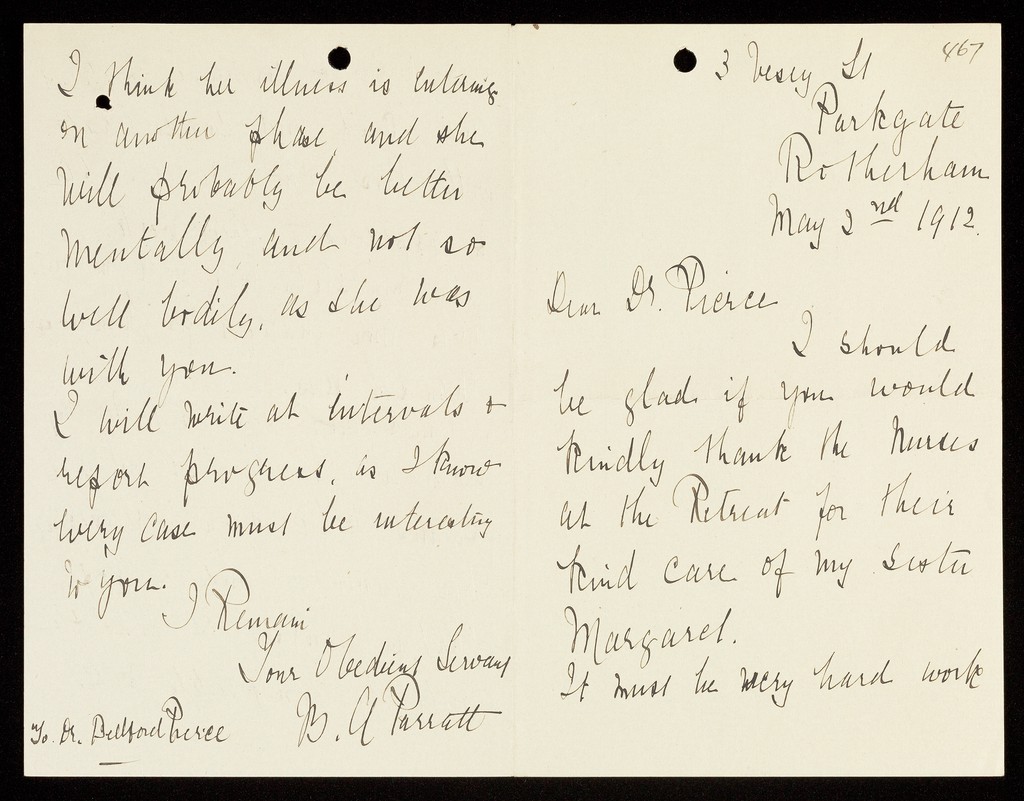 467
3 Vesey St
Parkgate
Rotherham
May 2nd 1912.
Dear Dr. Pierce
I should
be glad if you would
kindly thank the Nurses
at the Retreat for their
kind care of my sister
Margaret.
It must be very hard work
I think her illness is entering
on another phase and she
will probably be better
mentally, and not so
well bodily, as she was
with you.
I will write at intervals &
report progress, as I know
every case must be interesting
to you.
I Remain
Your Obedient Servant
B. A Parratt
To. Dr. Bedford Pierce